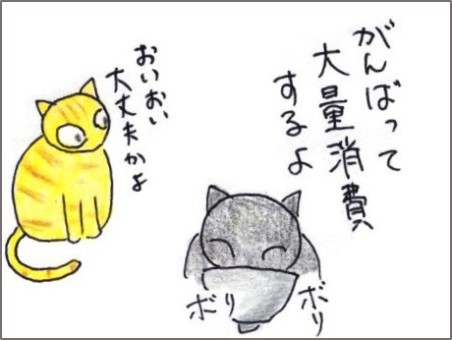 がんばって
大量消費
するよ
おいおい
大丈夫かよ
ボリ
ボリ